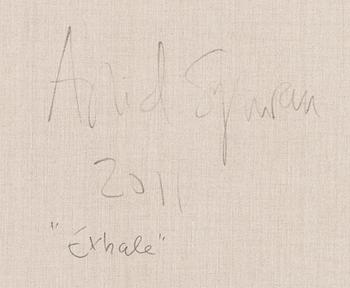 Astrid Sylwan
2011
"Exhale"